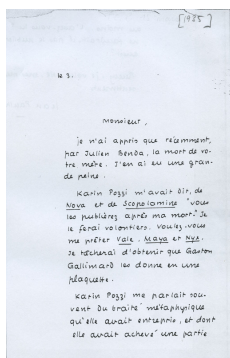 [1935]
le 3.
Monsieur,
je n'ai appris que récemment,
par Julien Benda, la mort de vo-
tre mère. J'en ai eu une gran-
de peine.
Karin Pozzi m'avait dit, de
Nova et de Scopolamine "vous
les publierez après ma mort." Je
le ferai volontiers. Voulez-vous
me prêter Vale, Maya et Nyx.
Je tâcherai d'obtenir que Gaston
Gallimard les donne en une
plaquette.
Karin Pozzi me parlait sou-
vent du traité métaphysique
qu'elle avait entrepris, et dont
elle avait achevé une partie